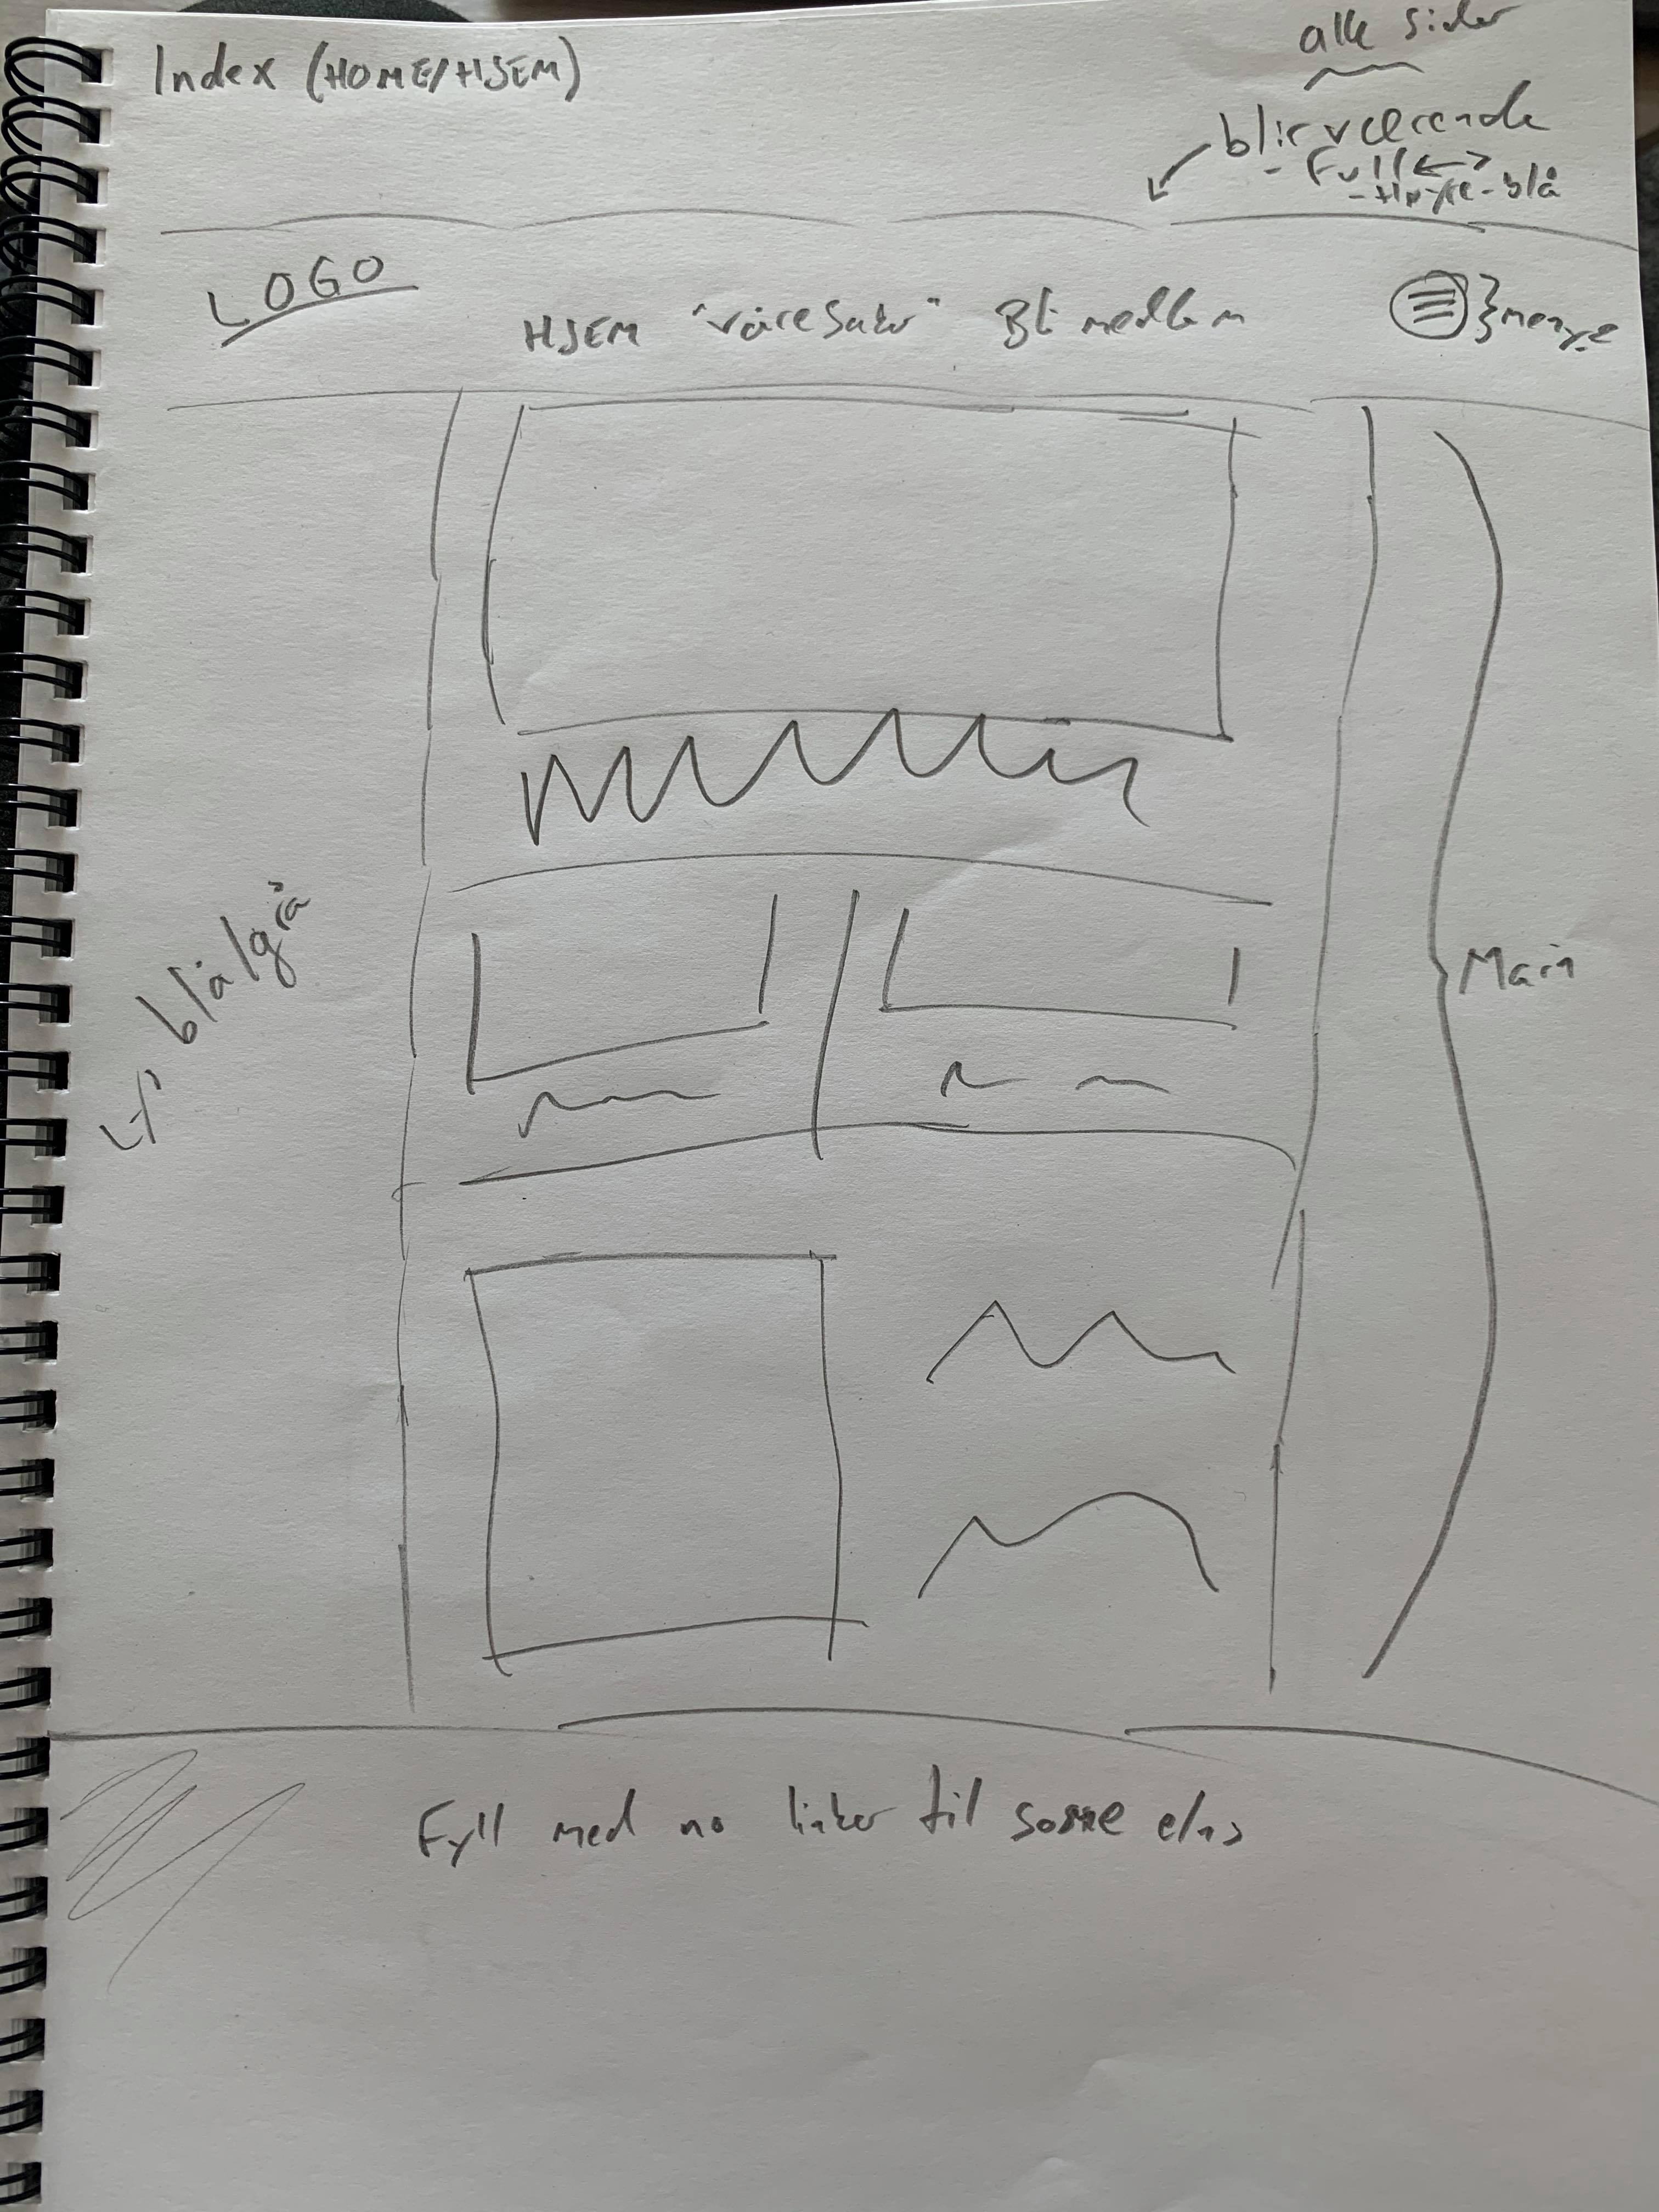 Index (HOME/HJEM)
alle sider
blir værende
- Full ↔
- Høyre - blå
LOGO
HJEM "våre saker" Bli medlem
meny
lys blå/grå
Main
Fyll med no linker til some elns